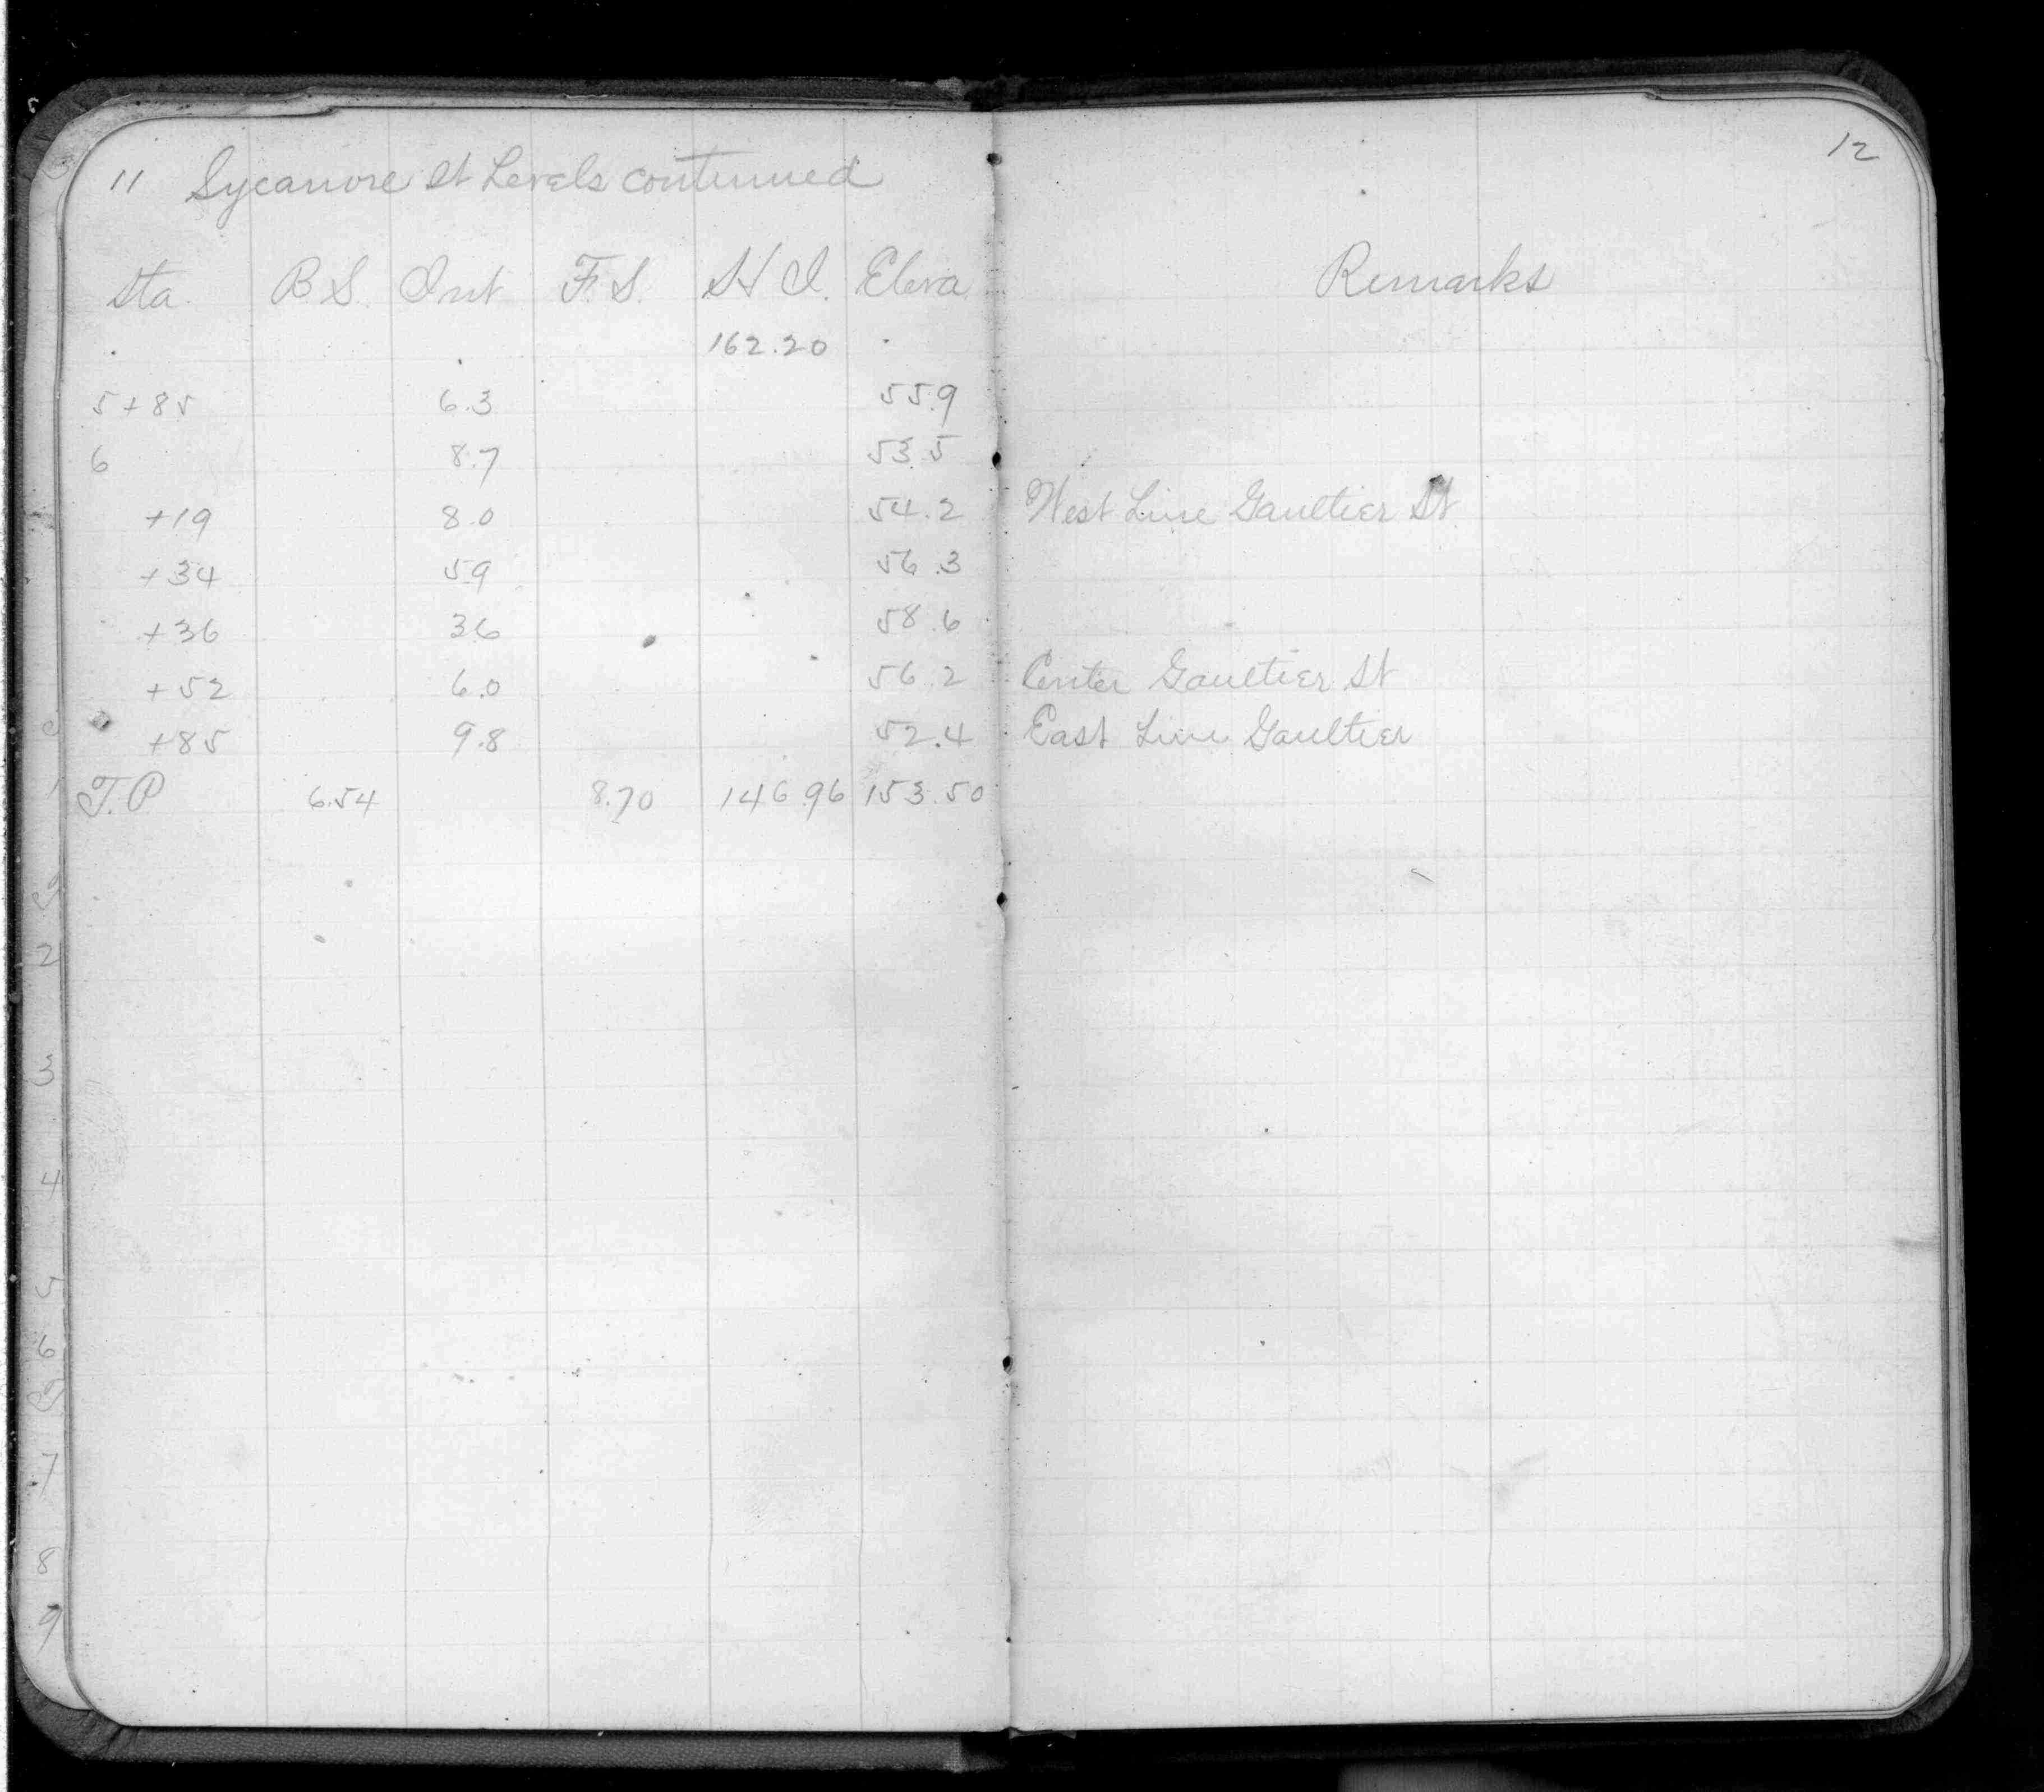 11 Sycamore St Levels continued
12
Sta. B.S. Int F.S. H.I. Eleva. Remarks
162.20
5+85 6.3 55.9
6 8.7 53.5
+19 8.0 54.2 West Line Gaultier St
+34 5.9 56.3
+36 3.6 58.6
+52 6.0 56.2 Center Gaultier St
+85 9.8 52.4 East Line Gaultier
T.P 6.54 8.70 146.96 153.50
2
3
4
5
6
7
8
9